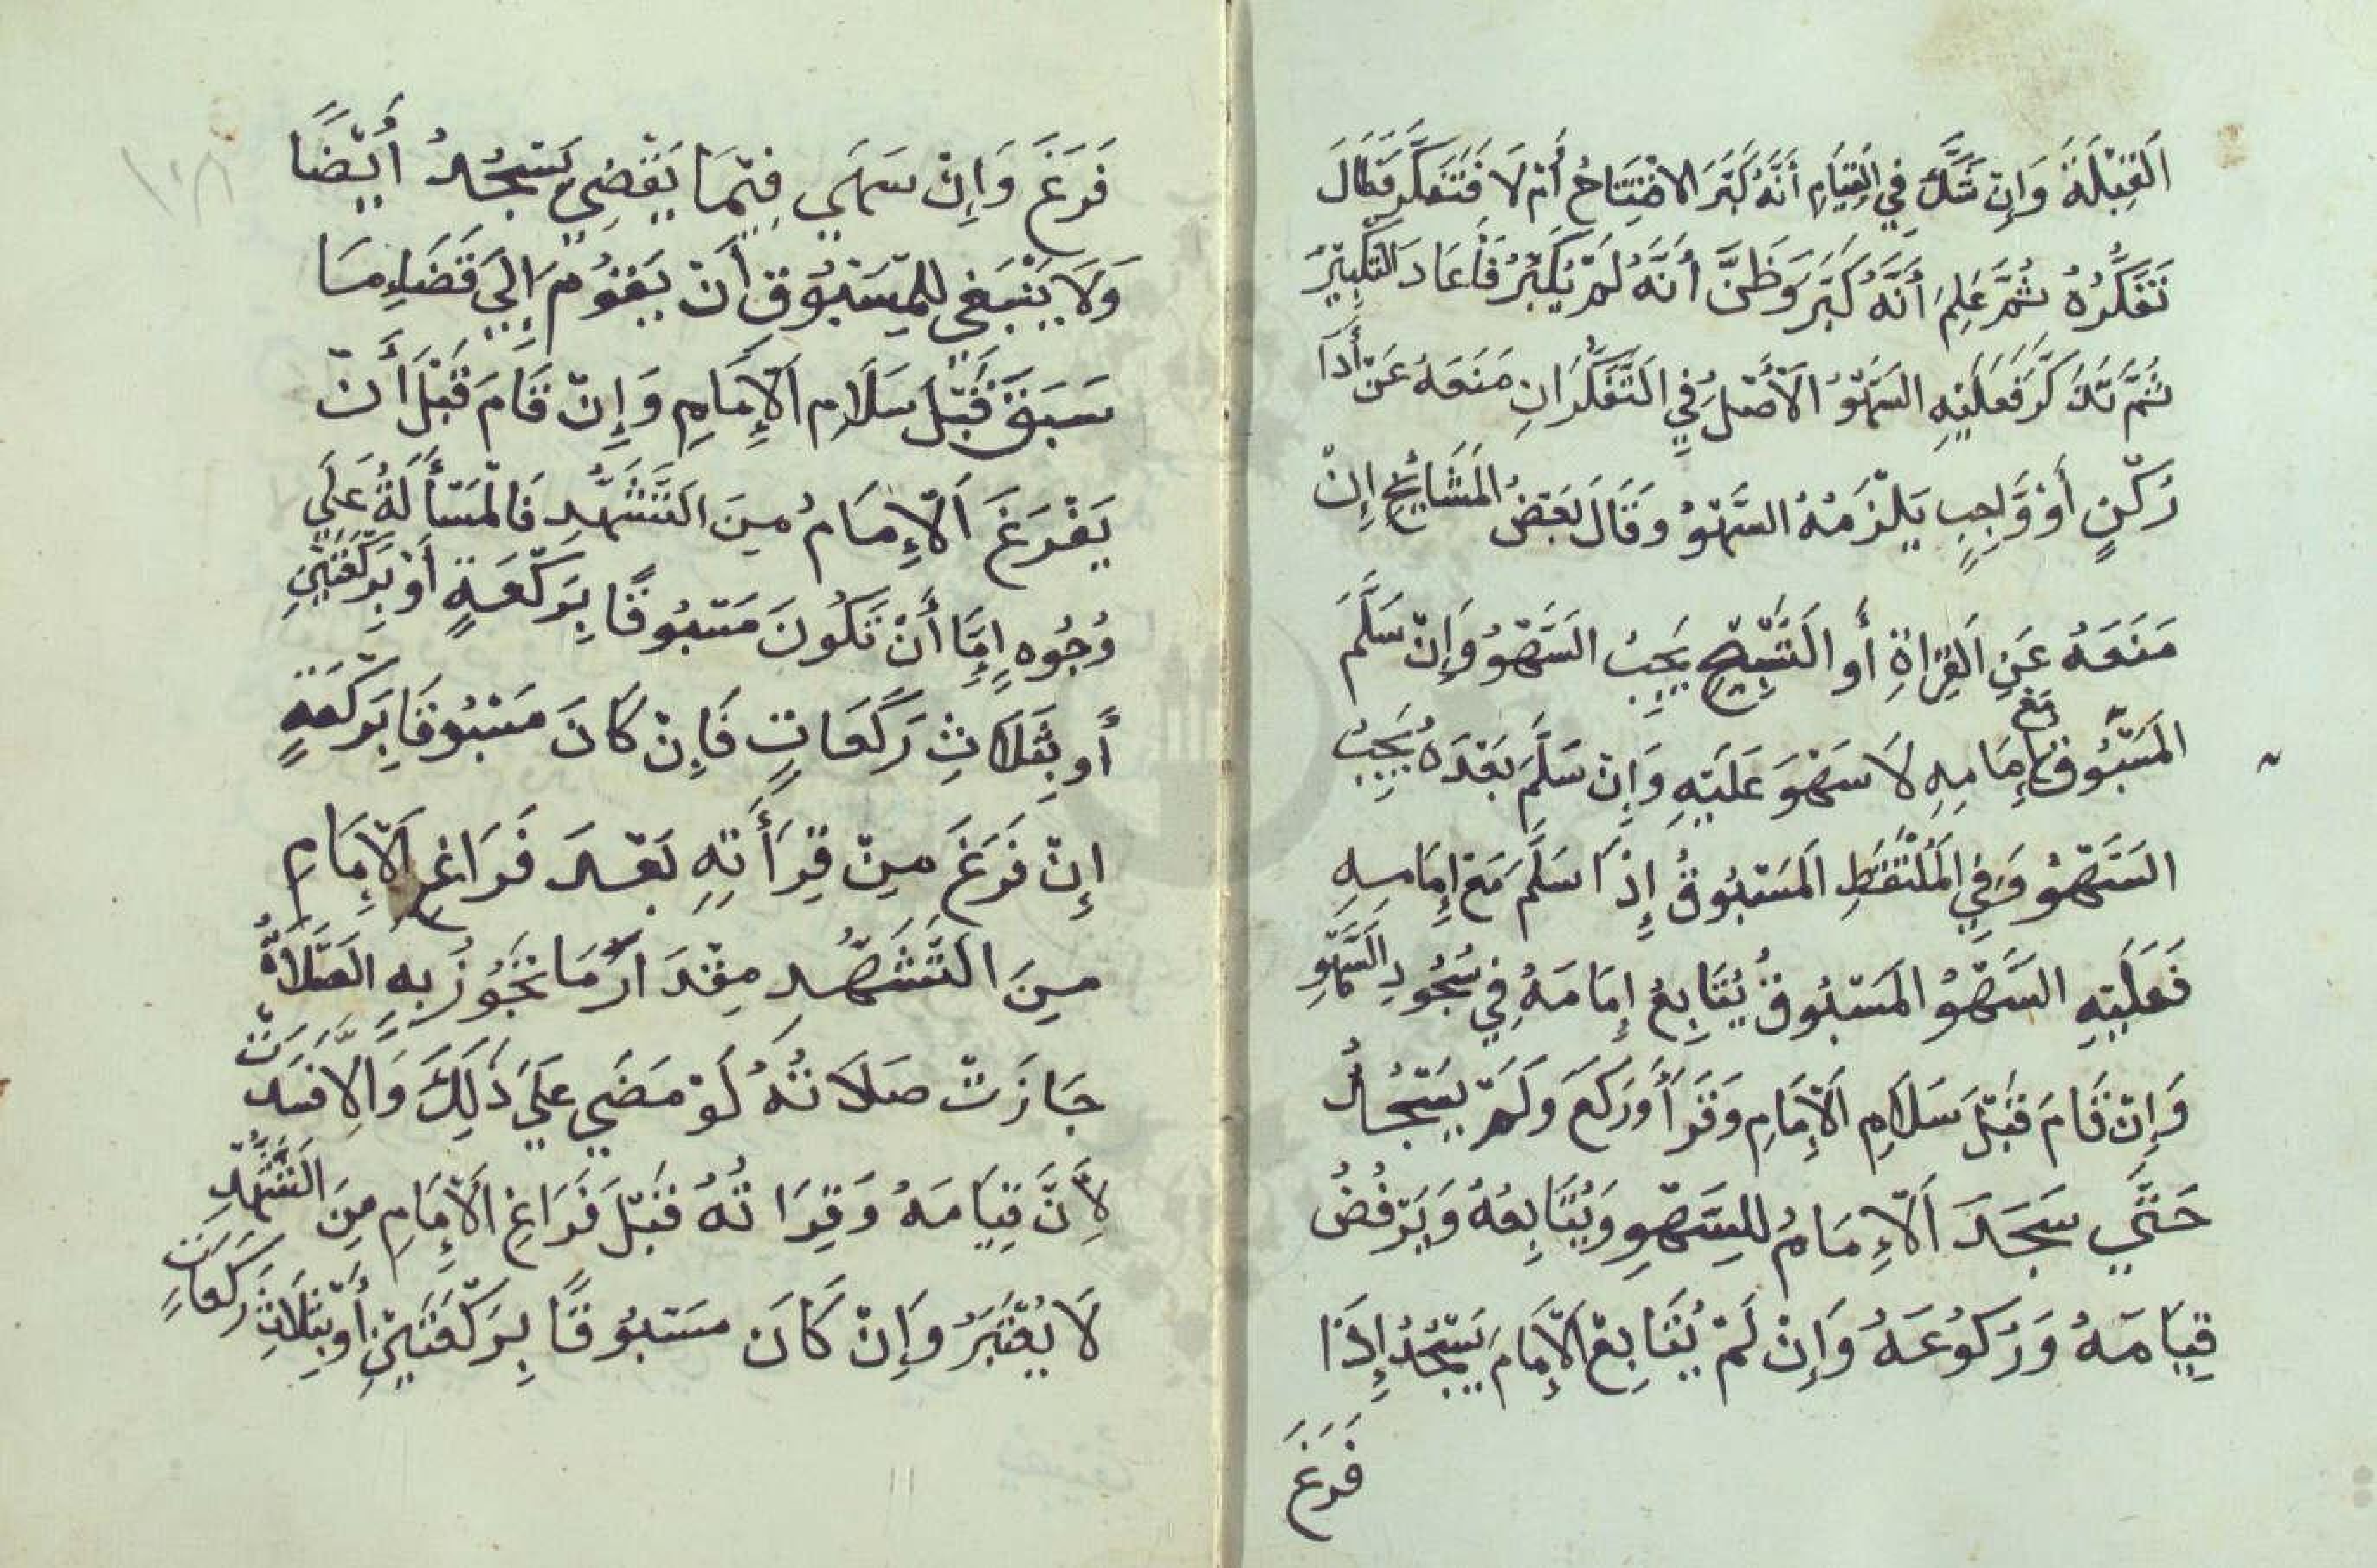 القِبْلَةَ وَإِنْ شَكَّ فِي القِيَامِ أَنَّهُ كَبَّرَ الافْتِتَاحُ أَمْ لَا فَتَفَكَّرَ فَطَالَ
تَفَكُّرُهُ ثُمَّ عَلِمَ أَنَّهُ كَبَّرَ وَظَنَّ أَنَّهُ لَمْ يُكَبِّرْ فَأَعَادَ التَّكْبِيْرَ
ثُمَّ تَذَكَّرَ فَعَلَيْهِ السَّهْوُ الأَصْلُ فِي التَّفَكُّرِ إِنْ مَنَعَهُ عَنْ أَدَا
رُكْنٍ أَوْ وَاجِبٍ يَلْزَمُهُ السَّهْوُ وَقَالَ بَعْضُ المَشَائِخِ إِنْ
مَنَعَهُ عَنِ القِرَاةِ أَو التَّسْبِيْحِ يَجِبُ السَّهْوُ وَإِنْ سَلَّمَ
المَسْبُوقُ مَعَ إِمَامِهِ لَا سَهْوَ عَلَيْهِ وَإِنْ سَلَّمَ بَعْدَهُ يَجِبُ
السَّهْوُ وَفِي المُلْتَقَطِ المَسْبُوقُ إِذَا سَلَّمَ مَعَ إِمَامِهِ
فَعَلَيْهِ السَّهْوُ المَسْبُوقُ يُتَابِعُ إِمَامَهُ فِي سُجُودِ السَّهْوِ
وَإِنْ قَامَ قَبْلَ سَلَامِ الْإِمَامِ وَقَرَأَ وَرَكَعَ وَلَمْ يَسْجُدْ
حَتَّي سَجَدَ الْإِمَامُ للِسَّهْوِ وَيُتَابِعُهُ وَيَرْفُضُ
قِيَامَهُ وَرُكُوعَهُ وَإِنْ لَمْ يُتَابِعْ الْإِمَامَ يَسْجُدُ إِذَا
فَرَغَ
فَرَغَ وَإِنْ سَهَي فِيْمَا يَقْضِي يَسْجُدُ أَيْضًا
وَلَا يَنْبَغِي لِلْمَسْبُوقِ أَنْ يَقُومَ إِلَي قَضَاءِ مَا
سَبَقَ قَبْلَ سَلَامِ الْإِمَامِ وَإِنْ قَامَ قَبْلَ أَنْ
يَفْرَغَ الْإِمَامُ مِنَ التَّشَهُّدِ فَالْمَسْأَلَةُ عَلَي
وُجُوهٍ إِمَّا أَنْ تَكُونَ مَسْبُوقًا بِرَكْعَةٍ أَوْ بِرَكْعَتَيْنِ
أَو بِثَلَاثِ رَكَعَاتٍ فَإِنْ كَانَ مَسْبُوقًا بِرَكْعَةٍ
إِنْ فَرَغَ مِنْ قِرَأَتِهِ بَعْدَ فَرَاغِ الْإِمَامِ
مِنَ التَّشَهُّدِ مِقْدَارَ مَا تَجُوزُ بِهِ الصَّلَاةُ
جَازَتْ صَلَاتُهُ لَوْ مَضَي عَلَي ذَلِكَ وَالَّا فَسَدَتْ
لِأَنَّ قِيَامَهُ وَقِرَاتُهُ قَبْلَ فَرَاغِ الْإِمَامِ مِنَ التَّشَهُّدِ
لَا يُعْتَبَرُ وَإِنْ كَانَ مَسْبُوقًا بِرَكْعَتَيْنِ أَوْ بِثَلَاثِ رَكَعَاتٍ